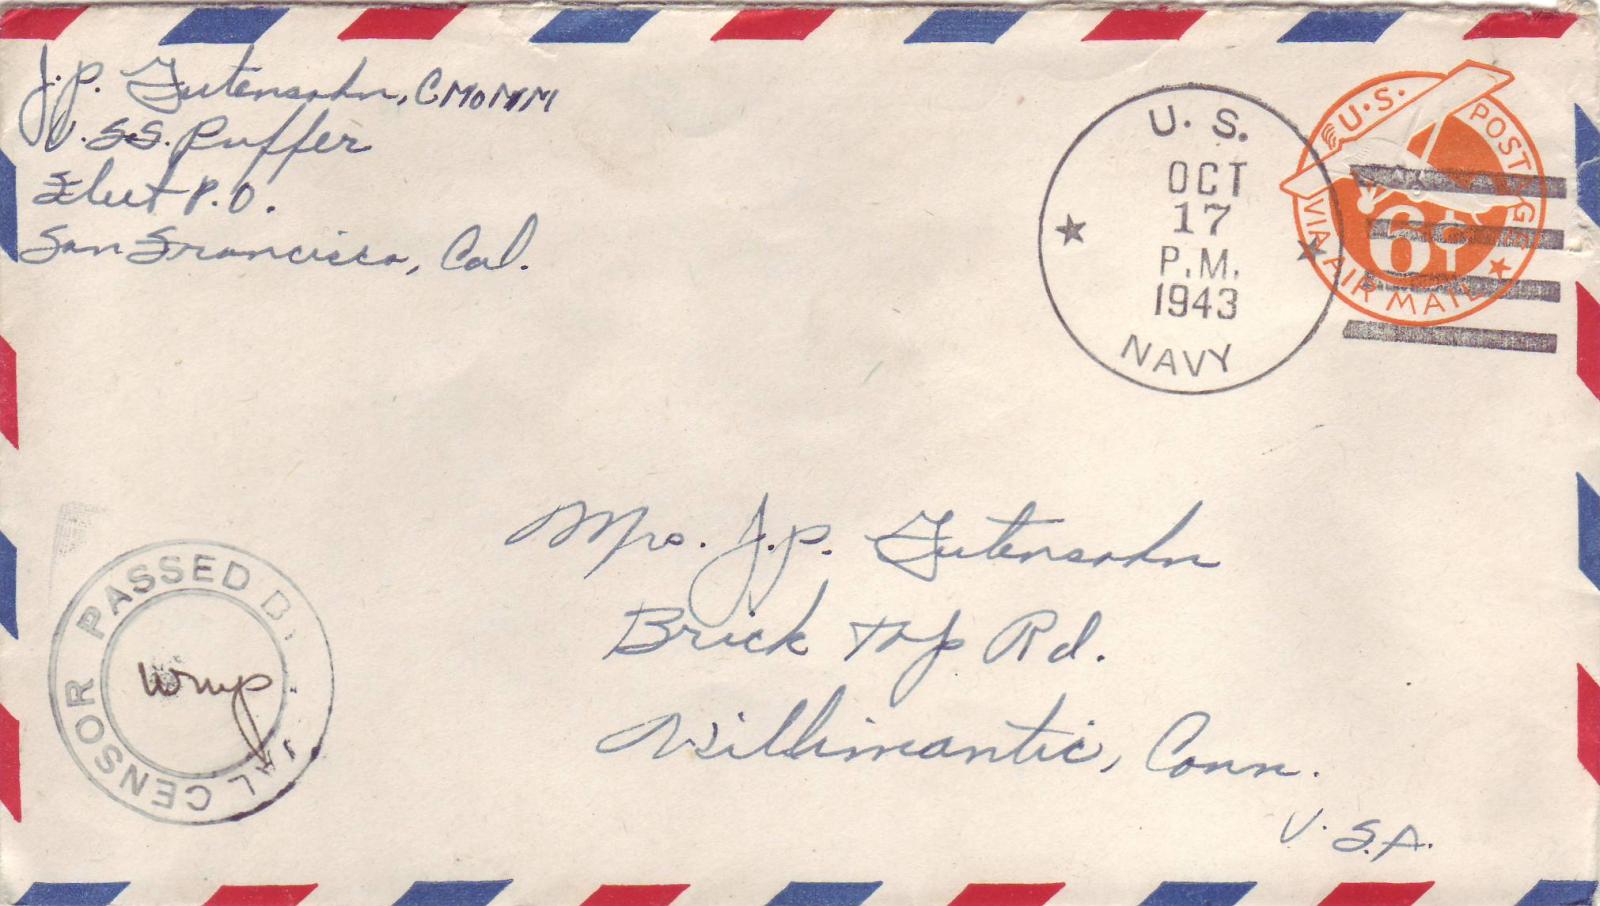 J.P. Gutensohn, CMoMM
U.S.S. Puffer
Fleet P.O.
San Francisco, Cal.
U. S.
OCT
17
P.M.
1943
NAVY
U.S. POSTAGE
6¢
VIA AIR MAIL
Mrs. J.P. Gutensohn
Brick Top Rd.
Willimantic, Conn.
U.S.A.
PASSED B
AL CENSOR
wmp